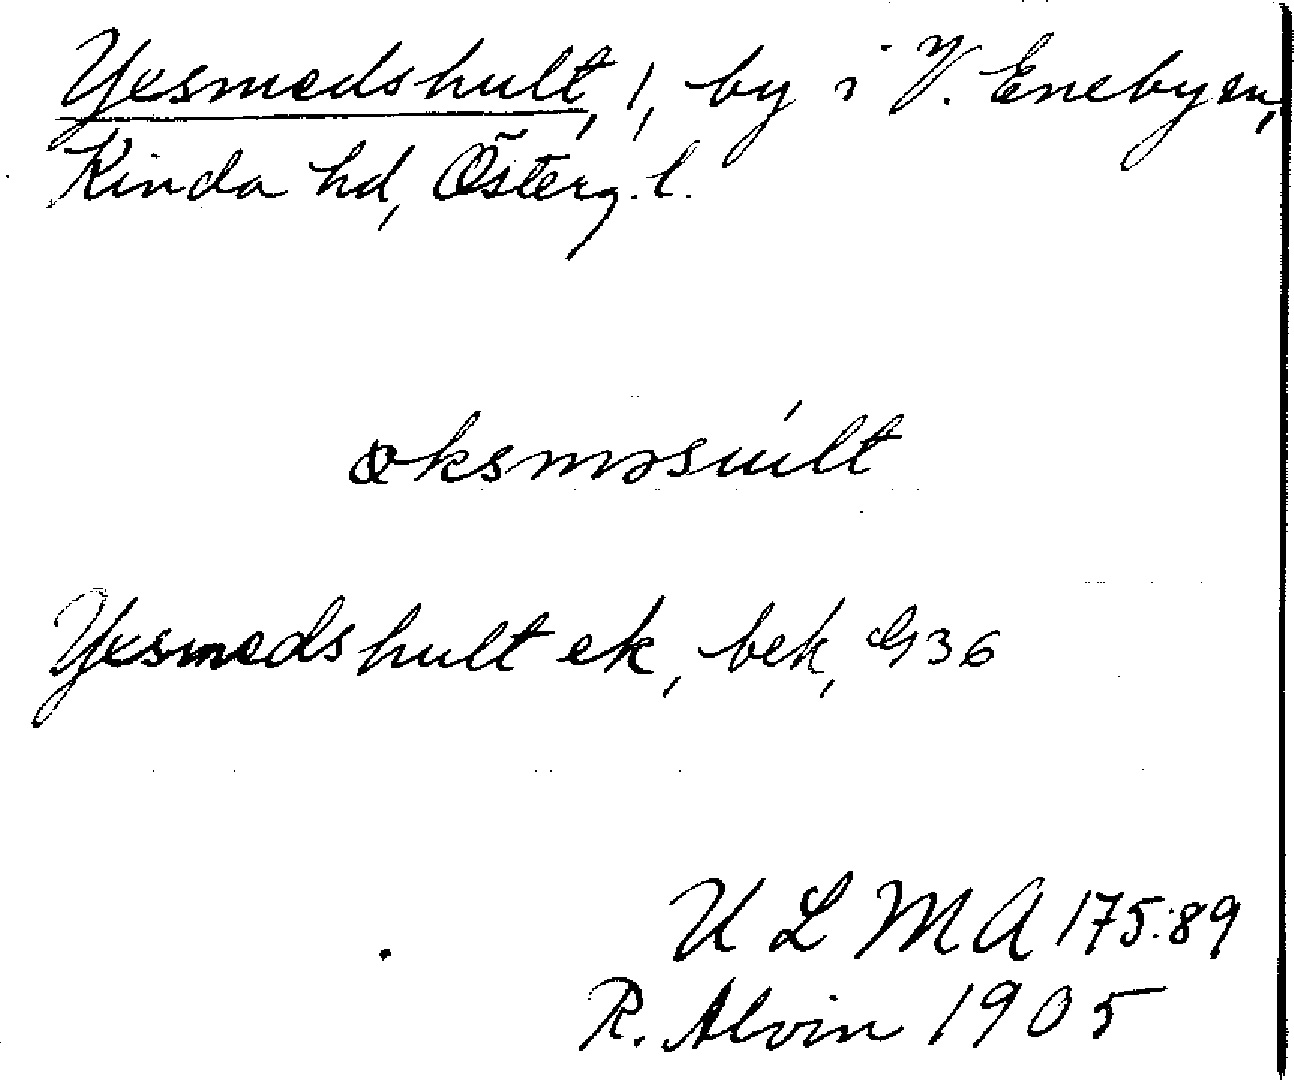 Yxsmedshult, 1, by i V. Eneby sn,
Kinda hd, Österg. l.
Yxsmedshult ek, bek, G36
U L M A 175:89
R. Alvin 1905